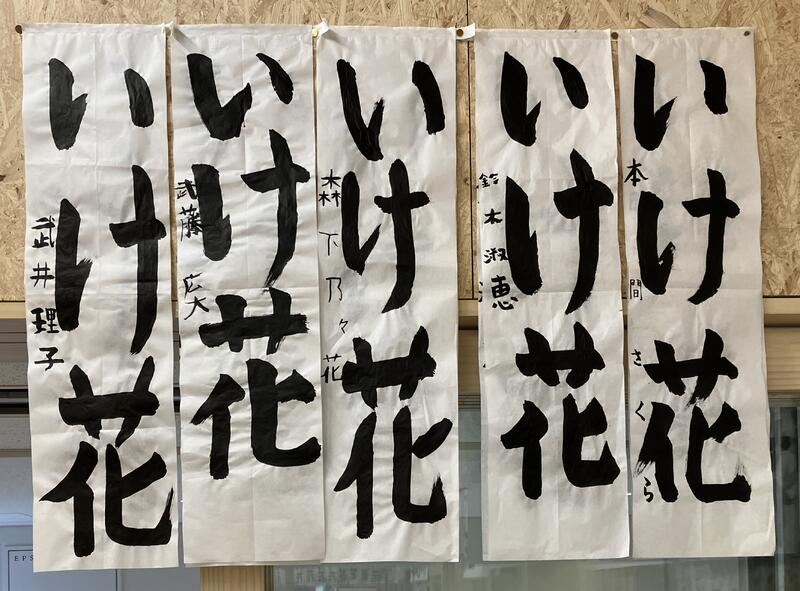 いけ花
本間さくら
いけ花
鈴木淑恵
いけ花
森下乃々花
いけ花
武藤広大
いけ花
武井理子
EPS